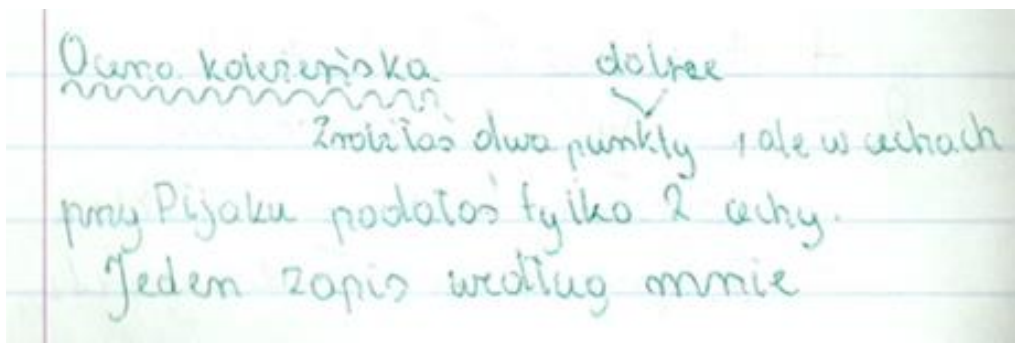 Ocena koleżeńska
dobrze
Zrobiłaś dwa punkty, ale w cechach
przy Pijaku podałaś tylko 2 cechy.
Jeden zapis według mnie